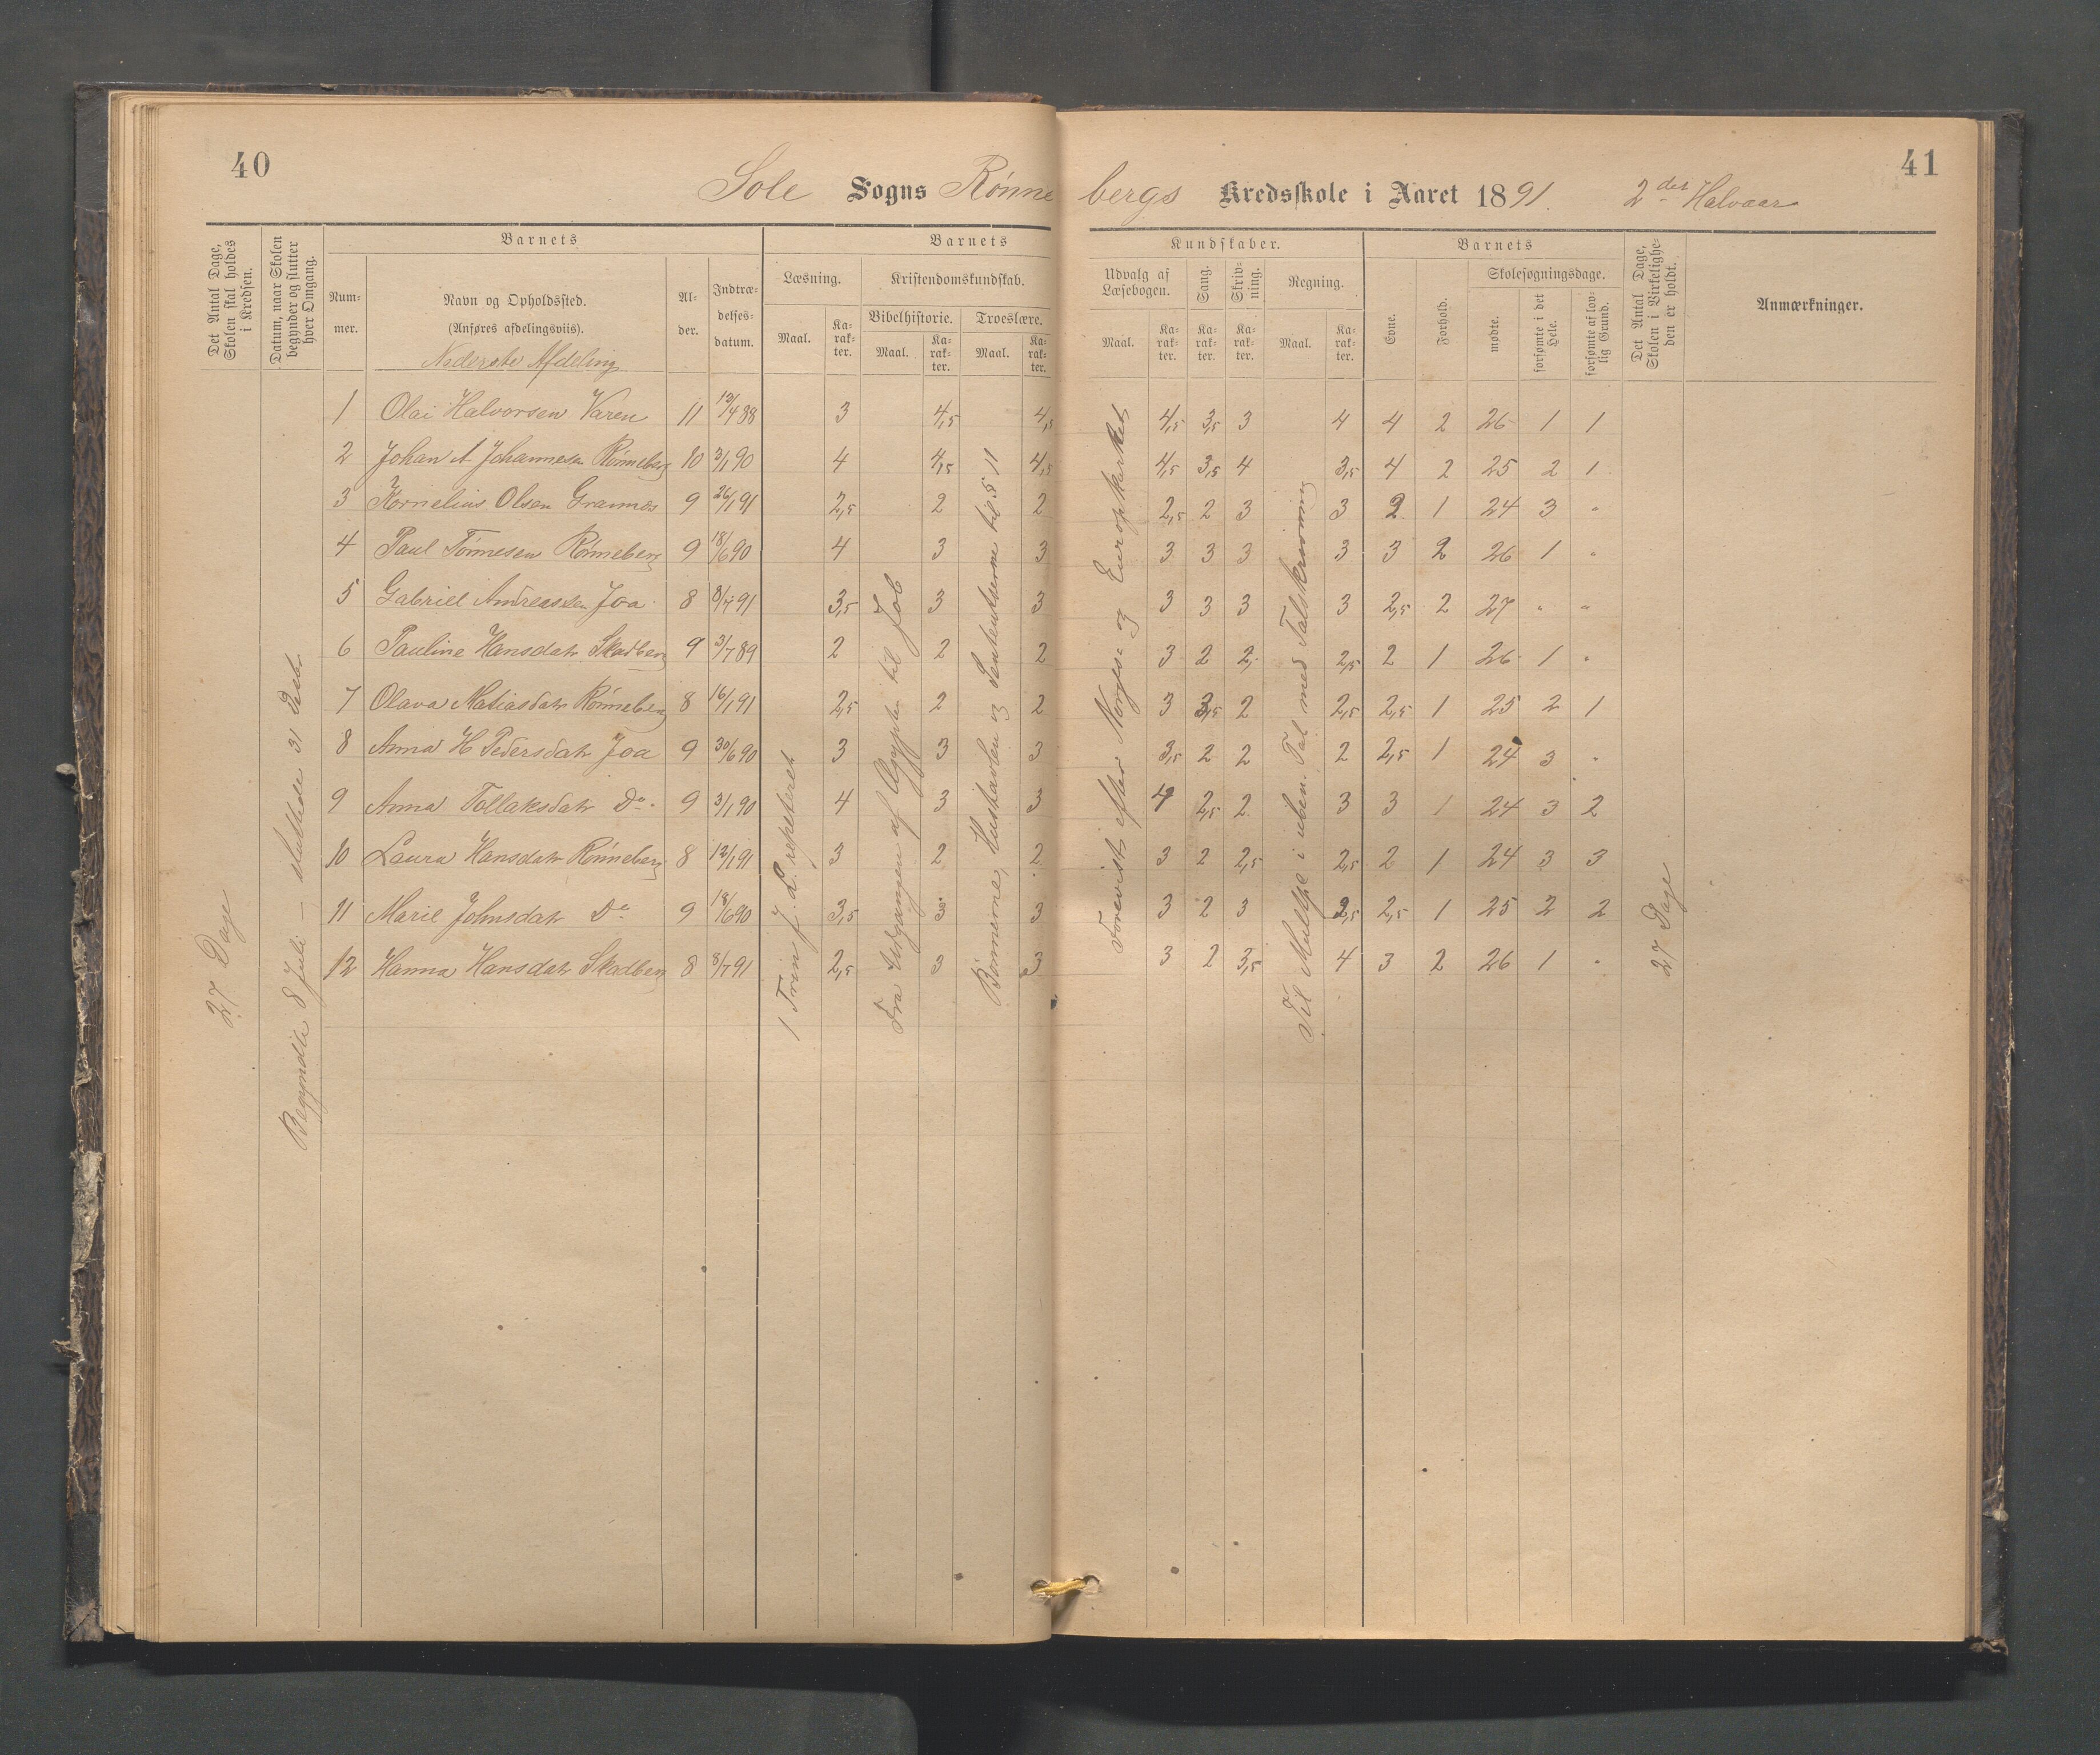 40
41
Sole Sogns Rønnebergs Kredsskole i Aaret 1891. 2det Halvaar
Det Antal Dage, Skolen skal holdes i Kredsen.
Datum, naar Skolen begynder og slutter hver Omgang.
Barnets
Barnets
Kundskaber.
Barnets
Det Antal Dage, Skolen i Virkeligheden er holdt.
Anmærkninger.
Nummer.
Navn og Opholdssted.
(Anføres afdelingsviis).
Nederste Afdeling
Alder.
Indtrædelsesdatum.
Læsning.
Maal.
Karakter.
Kristendomskundskab.
Bibelhistorie.
Maal.
Karakter.
Troeslære.
Maal.
Karakter.
Udvalg af Læsebogen.
Maal.
Karakter.
Sang.
Karakter.
Skrivning.
Karakter.
Regning.
Maal.
Karakter.
Evne.
Forhold.
Skolesøgningsdage.
mødte.
forsømte i det Hele.
forsømte af lovlig Grund.
1 Olai Halvorsen Varen 11 12/4 88 3 4,5 4,5 4,5 3,5 3 4 4 2 26 1 1
2 Johan A Johannesen Rønneberg 10 3/1 90 4 4,5 4,5 4,5 3,5 4 3,5 4 2 25 2 1
3 Kornelius Olsen Grannes 9 26/1 91 2,5 2 2 2,5 2 3 3 2 1 24 3 "
4 Paul Tønnesen Rønneberg 9 18/6 90 4 3 3 3 3 3 3 3 2 26 1 "
5 Gabriel Andreassen Joa 8 8/7 91 3,5 3 3 3 3 3 3 2,5 2 27 " "
6 Pauline Hansdatr Skadberg 9 3/7 89 2 2 2 3 2 2 2,5 2 1 26 1 "
7 Olava Matiasdatr Rønneberg 8 16/1 91 2,5 2 2 3 3,5 2 2,5 2,5 1 25 2 1
8 Anna H Pedersdatr Joa 9 30/6 90 3 3 3 3,5 2 2 2 2,5 1 24 3 "
9 Anna Tollaksdatr Do 9 3/1 90 4 3 3 4 2,5 2 3 3 1 24 3 2
10 Laura Hansdatr Rønneberg 8 12/1 91 3 2 2 3 2 2,5 2,5 2 1 24 3 3
11 Marie Johnsdatr Do 9 18/6 90 3,5 3 3 3 2 3 2,5 2,5 1 25 2 2
12 Hanna Hansdatr Skadberg 8 8/7 91 2,5 3 3 3 2 3,5 4 3 2 26 1 "
27 Dage
Begyndte 8 Juli – sluttede 31 Decbr
1 Trin f. L. repeteret
Fra Udgangen af Ægypten til Job
Bønnerne, Hustavlen og Sententserne til § 11
Forevist efter Norges- og Europakartet
Til Multipl i uben. Tal med Talskrivning
27 Dage